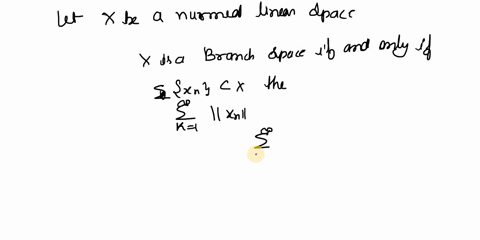 Let X be a nurmed linear space
X is a Branch space if and only if
Σ {xn} ⊂ X the
∞
Σ ||xn||
K=1
∞
Σ